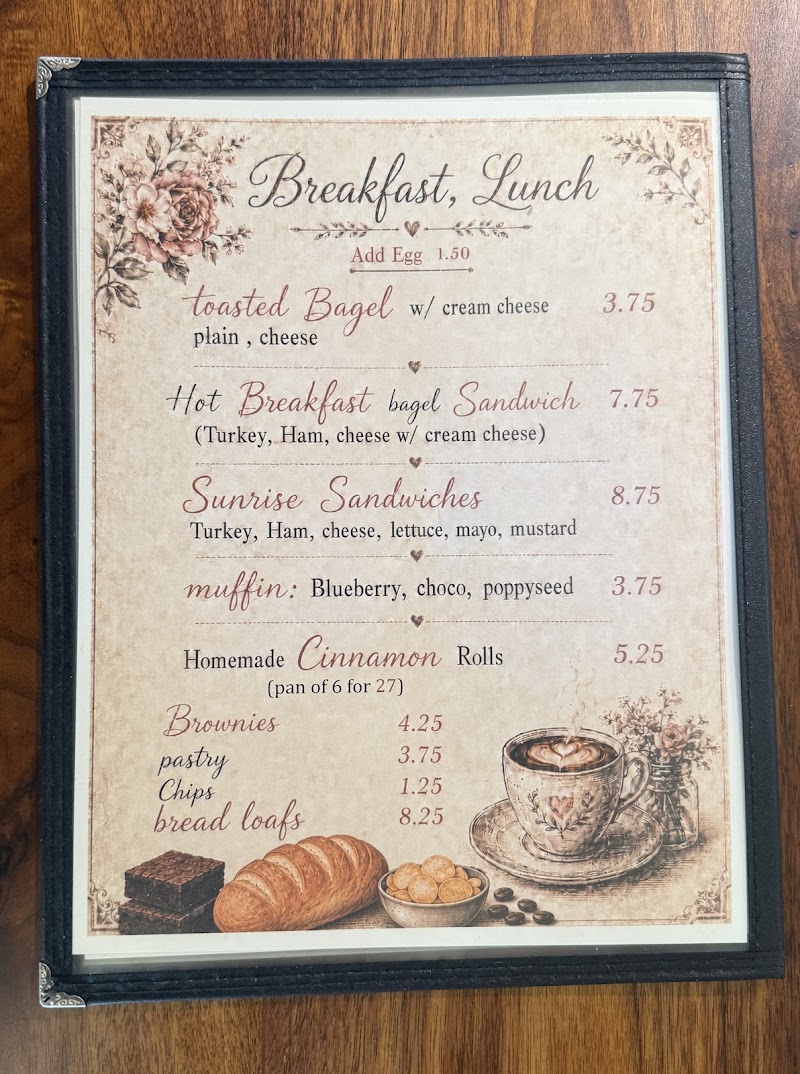 Breakfast, Lunch
Add Egg 1.50
toasted Bagel w/ cream cheese 3.75
plain , cheese
Hot Breakfast bagel Sandwich 7.75
(Turkey, Ham, cheese w/ cream cheese)
Sunrise Sandwiches 8.75
Turkey, Ham, cheese, lettuce, mayo, mustard
muffin: Blueberry, choco, poppyseed 3.75
Homemade Cinnamon Rolls 5.25
(pan of 6 for 27)
Brownies 4.25
pastry 3.75
Chips 1.25
bread loafs 8.25